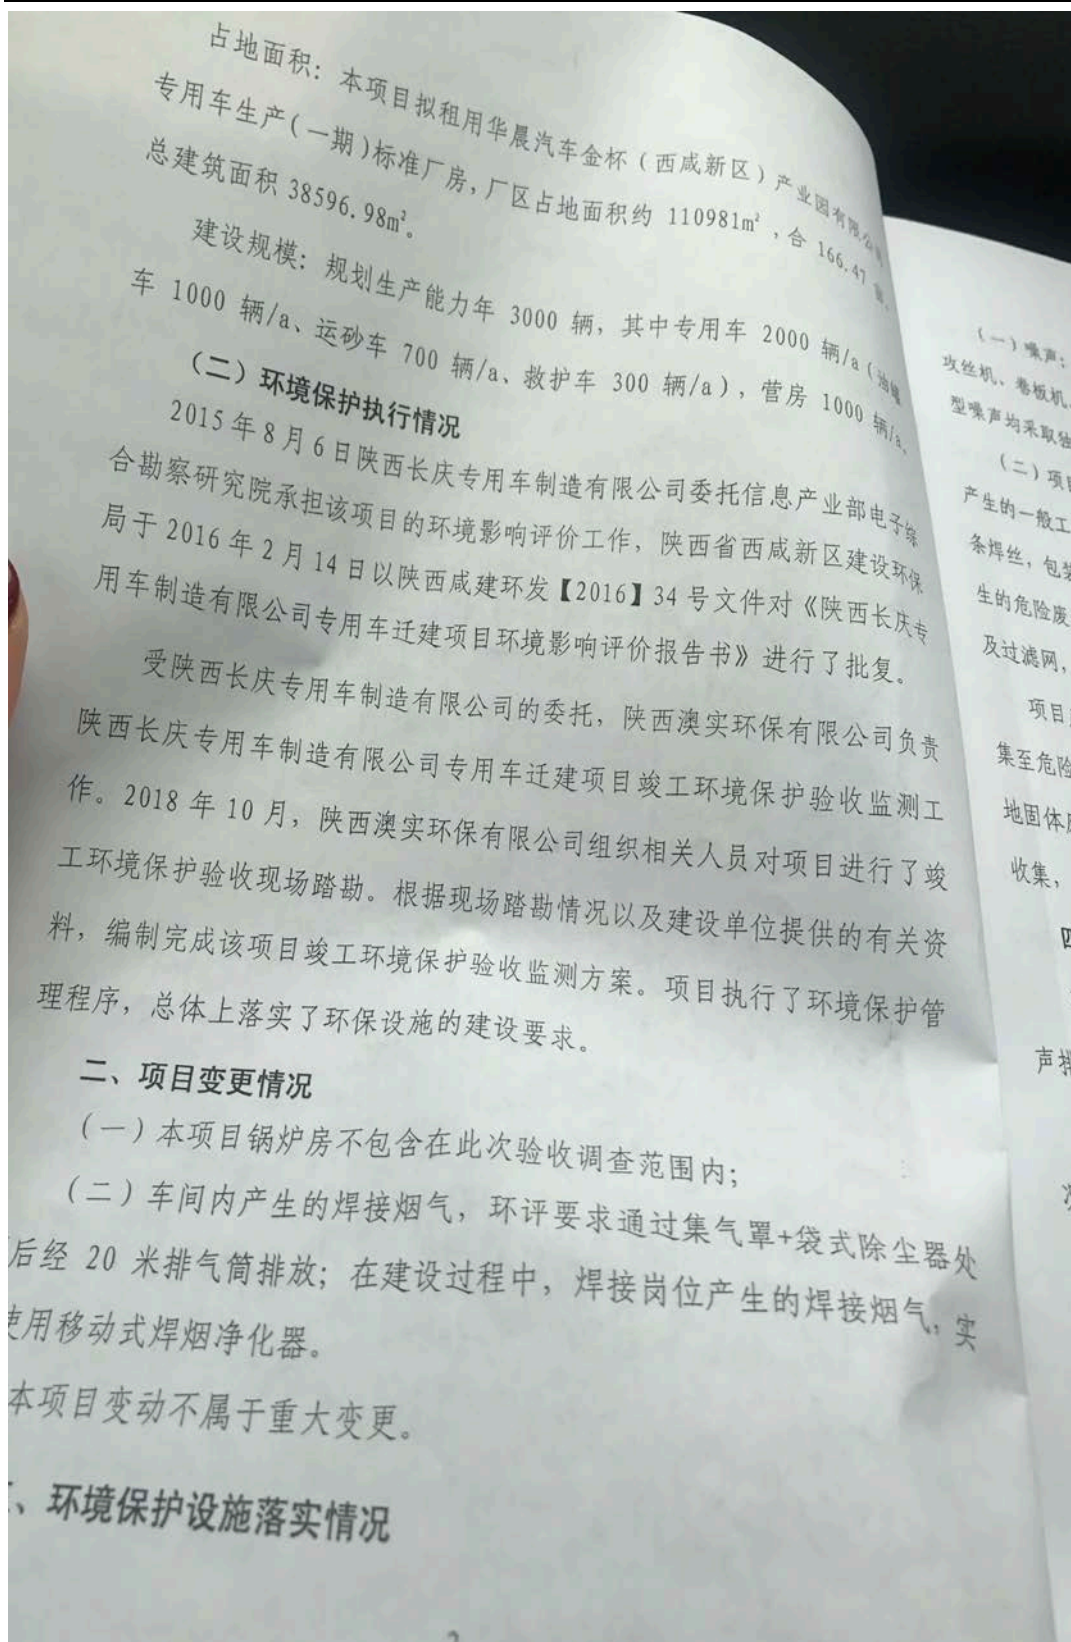 占地面积：本项目拟租用华晨汽车金杯（西咸新区）产业园有限公司
专用车生产(一期)标准厂房，厂区占地面积约 110981㎡，合 166.47
总建筑面积 38596.98㎡。
建设规模：规划生产能力年 3000 辆，其中专用车 2000 辆/a（油罐
车 1000 辆/a、运砂车 700 辆/a、救护车 300 辆/a），营房 1000 辆/a。
（二）环境保护执行情况
2015 年 8 月 6 日陕西长庆专用车制造有限公司委托信息产业部电子综
合勘察研究院承担该项目的环境影响评价工作，陕西省西咸新区建设环保
局于 2016 年 2 月 14 日以陕西咸建环发【2016】34 号文件对《陕西长庆专
用车制造有限公司专用车迁建项目环境影响评价报告书》进行了批复。
受陕西长庆专用车制造有限公司的委托，陕西澳实环保有限公司负责
陕西长庆专用车制造有限公司专用车迁建项目竣工环境保护验收监测工
作。2018 年 10 月，陕西澳实环保有限公司组织相关人员对项目进行了竣
工环境保护验收现场踏勘。根据现场踏勘情况以及建设单位提供的有关资
料，编制完成该项目竣工环境保护验收监测方案。项目执行了环境保护管
理程序，总体上落实了环保设施的建设要求。
二、项目变更情况
（一）本项目锅炉房不包含在此次验收调查范围内；
（二）车间内产生的焊接烟气，环评要求通过集气罩+袋式除尘器处
后经 20 米排气筒排放；在建设过程中，焊接岗位产生的焊接烟气，实
使用移动式焊烟净化器。
本项目变动不属于重大变更。
、环境保护设施落实情况
（一）噪声：
攻丝机、卷板机、
型噪声均采取独
（二）项目
产生的一般工
条焊丝，包装
生的危险废
及过滤网，
项目
集至危险
地固体
收集，
声排